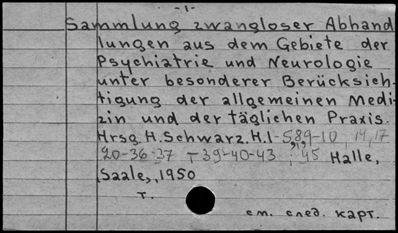 -1-
Sammlung zwangloser Abhand
lungen aus dem Gebiete der
Psychiatrie und Neurologie
unter besonderer Berücksich-
tigung der allgemeinen Medi-
zin und der täglichen Praxis.
Hrsg. H. Schwarz. H. 1-5,8,9-10, 14, 17
20-36-37 - 39-40-43, 45 Halle,
Saale, 1950
т.
см. след. карт.